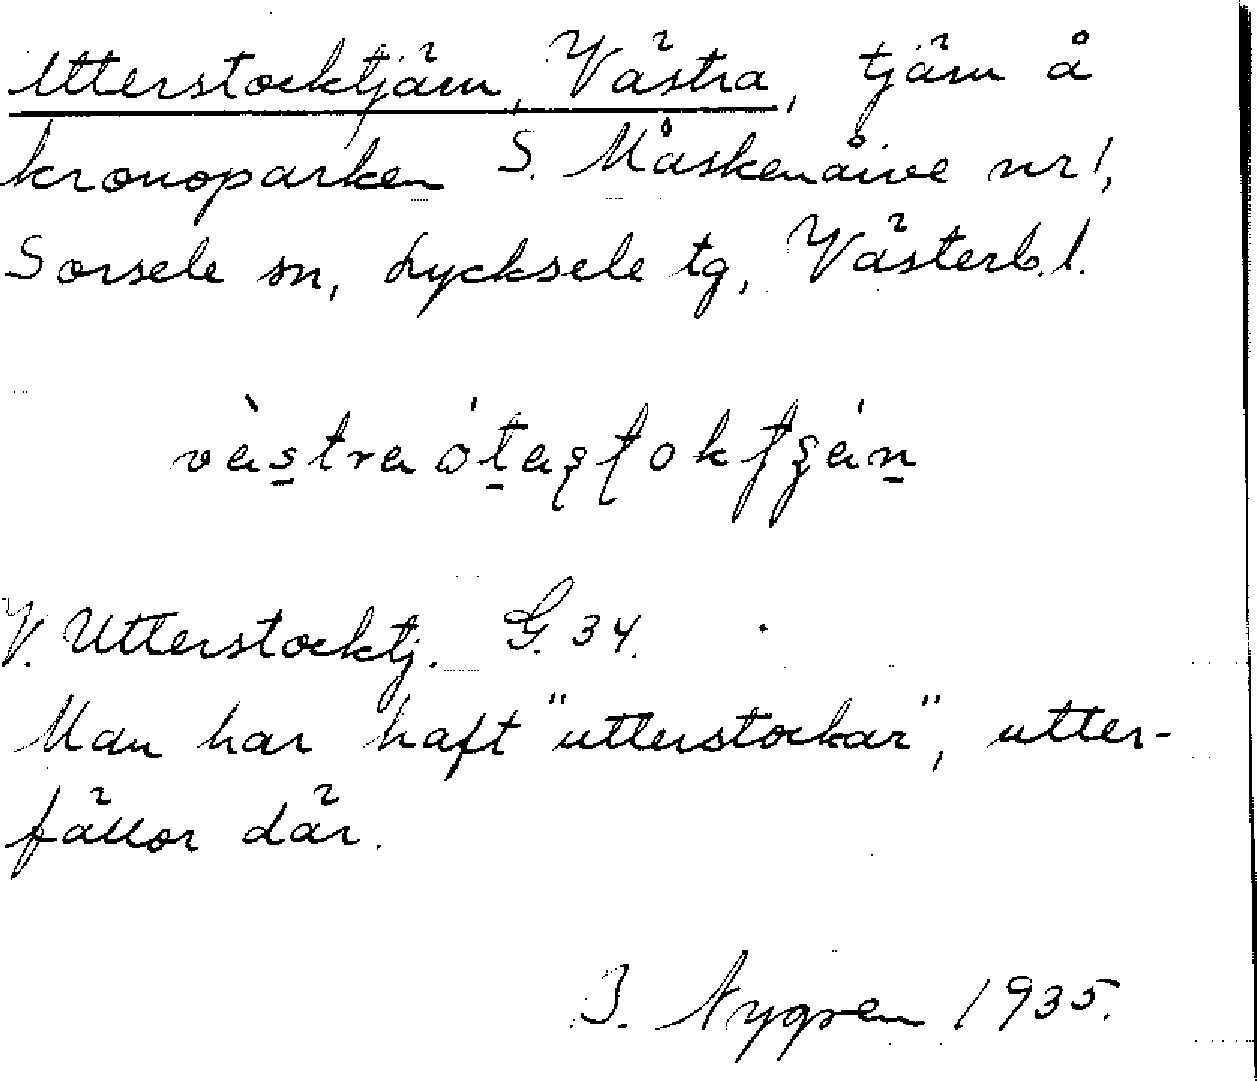 Utterstocktjärn, Västra, tjärn å
kronoparken S. Måskenåive nr 1,
Sorsele sn, Lycksele tg, Västerb. l.
V. Utterstocktj. G. 34.
Man har haft "utterstockar", utter-
fällor där.
I. Nygren 1935.